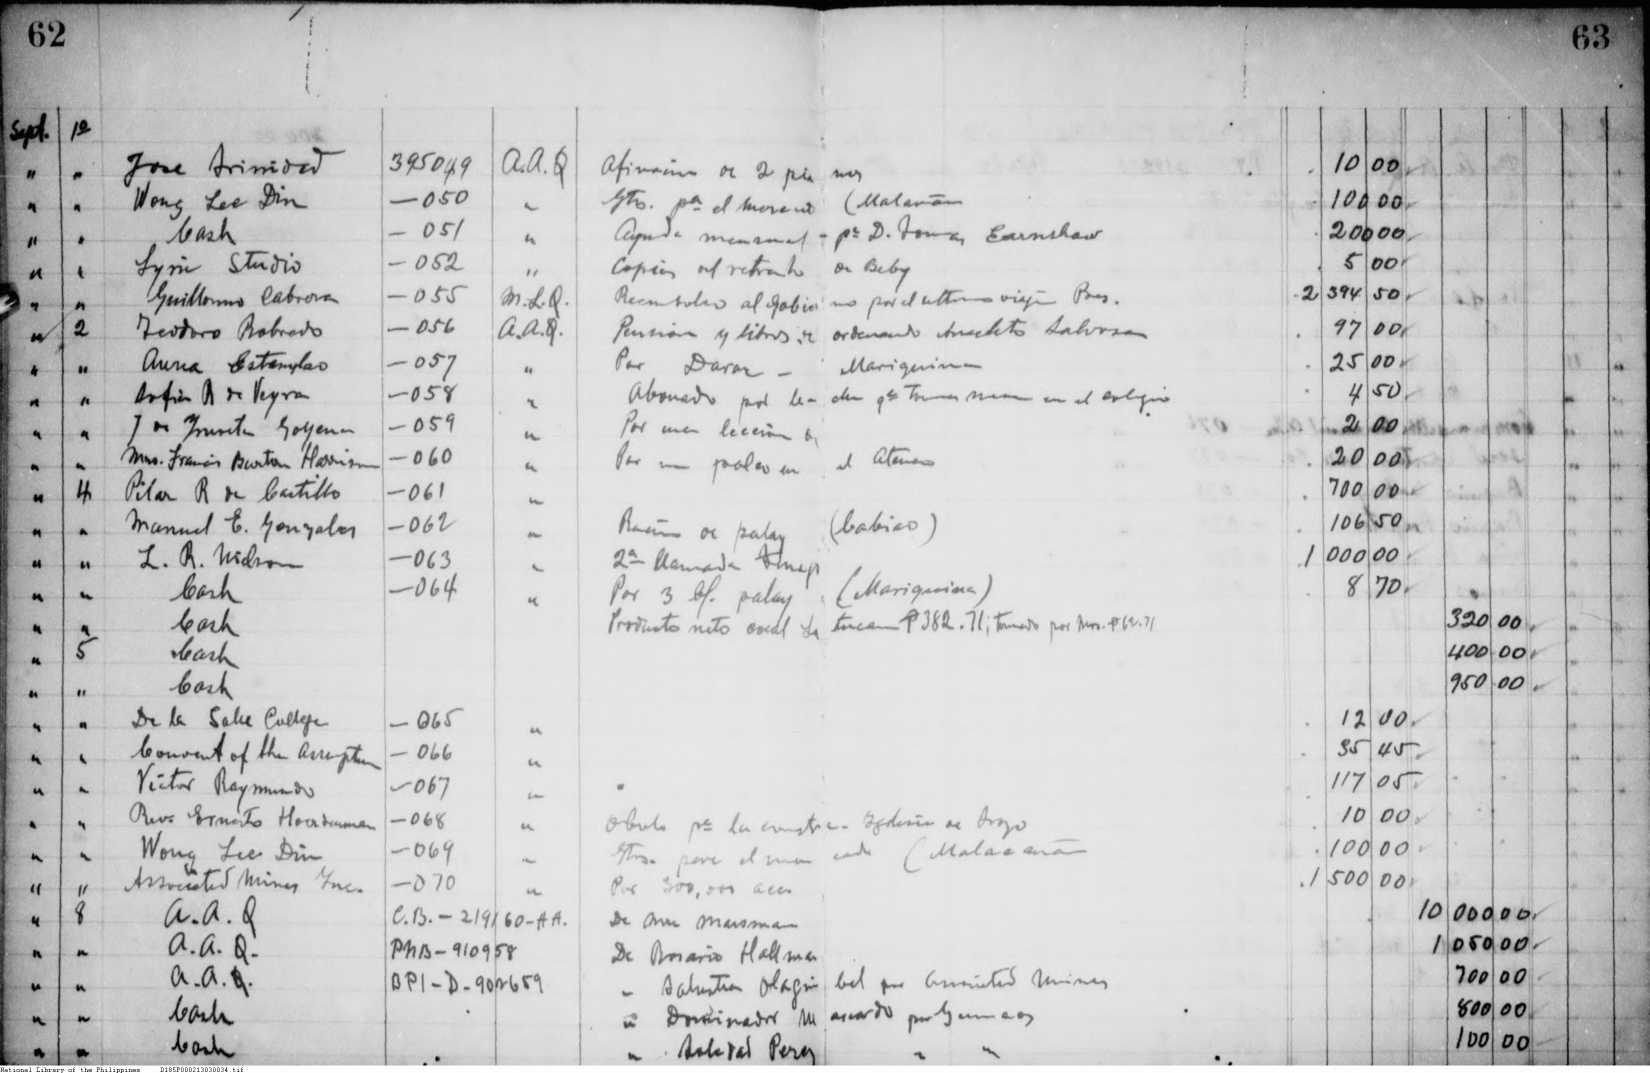 62 63
Sept. 1º
" " Jose Trinidad 395049 A.A.Q Afinación de 2 pianos 10 00
" " Wong Lee Din —050 " Gtos. pª el (Malacañan 100 00
" " Cash —051 " Ayuda mensual - pª D. Tomas Earnshaw 200 00
" " Lyric Studio —052 " Copias del retrato de Baby 5 00
" " Guillermo Cabrera —055 M.L.Q. Reembolso al por el ultimo viaje Pres. 2 394 50
" 2 Teodoro Robredo —056 A.A.Q. Pension y libros de Anacleto 97 00
" " Aurea Estanislao —057 " Por - Mariquina 25 00
" " Sofia R de Veyra —058 " Abonado por en el colegio 4 50
" " J de Goyena —059 " Por una leccion 2 00
" " Mrs. Francis Burton Harrison —060 " Por un palco en el Ateneo 20 00
" 4 Pilar R de Castillo —061 " 700 00
" " Manuel E. Gonzales —062 " de palay (Cabiao) 106 50
" " L. R. Nielson —063 " 2ª llamada 1 000 00
" " Cash —064 " Por 3 palay (Mariquina) 8 70
" " Cash Producto neto ₱382.71; tomado por Mrs. ₱62.71 320 00
" 5 Cash 400 00
" " Cash 950 00
" " De la Salle College —065 " 12 00
" " Convent of the Assumption —066 " 35 45
" " Victor Raymundo —067 " 117 05
" " Rev. Ernesto —068 " Obulo pª la Iglesia de 10 00
" " Wong Lee Din —069 " Gtos. para el (Malacañan 100 00
" " Associated Mines Inc. —070 " Por 300,000 acc 1 500 00
" 8 A.A.Q C.B.—219160-AA. De Mrs Marsman 10 000 00
" " A.A.Q. PNB—910958 De Rosario 1 050 00
" " A.A.Q. BPI-D-902659 " por Associated Mines 700 00
" " Cash " Dominador por 800 00
" " Cash " Soledad Perez " " 100 00
National Library of the Philippines D185P000213030034.tif